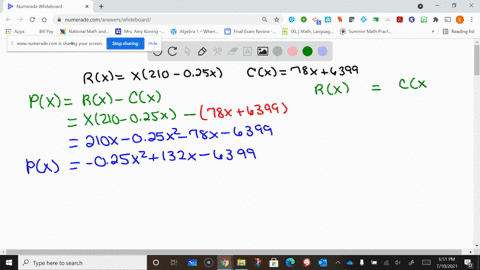 Numerade Whiteboard
numerade.com/answers/whiteboard/
Apps
Bill Pay
Mrs. Amy Körning -...
Algebra 1 - Khan...
Final Exam Review -...
Mathematics
Summer Math Pract...
Reading list
www.numerade.com is sharing your screen.
Stop sharing
Hide
R(x) = x(210 - 0.25x) C(x) = 78x + 6399
R(x) = C(x
P(x) = R(x) - C(x)
= x(210 - 0.25x) - (78x + 6399)
= 210x - 0.25x² - 78x - 6399
P(x) = -0.25x² + 132x - 6399
Type here to search
6:51 PM
7/10/2021